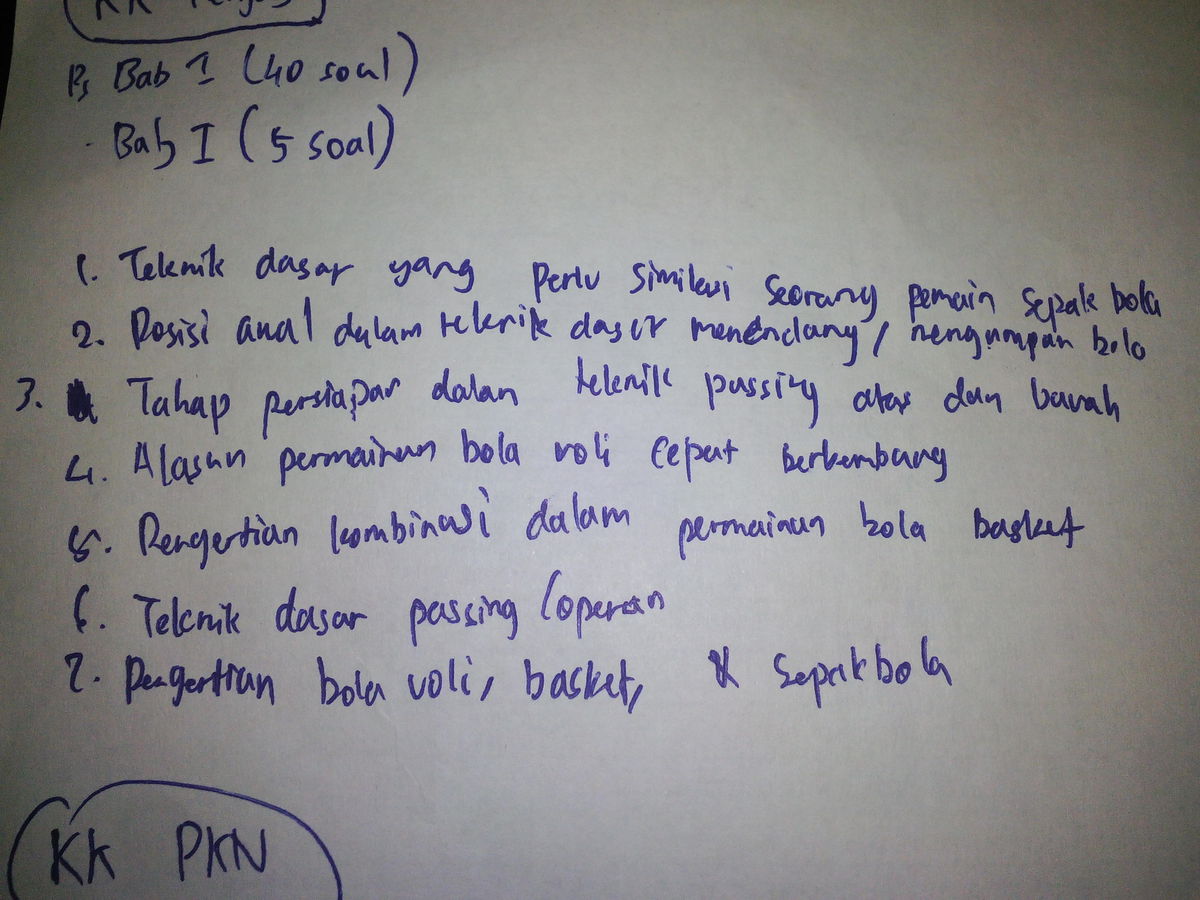 KK Penjas
Pg Bab 1 (40 soal)
- Bab I (5 soal)
1. Teknik dasar yang perlu dimiliki seorang pemain sepak bola
2. Posisi awal dalam teknik dasar menendang / mengumpan bola
3. Tahap persiapan dalan teknik passing atas dan bawah
4. Alasan permainan bola voli cepat berkembang
5. Pengertian kombinasi dalam permainan bola basket
6. Teknik dasar passing / operan
7. Pengertian bola voli, basket, & sepak bola
KK PKN